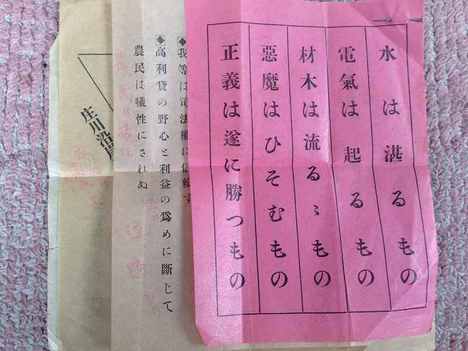 水は湛るもの
電氣は起るもの
材木は流るゝもの
惡魔はひそむもの
正義は遂に勝つもの
我等は司法權に信頼す
高利貸の野心と利益の爲めに斷じて
農民は犧牲にされぬ
庄川沿岸